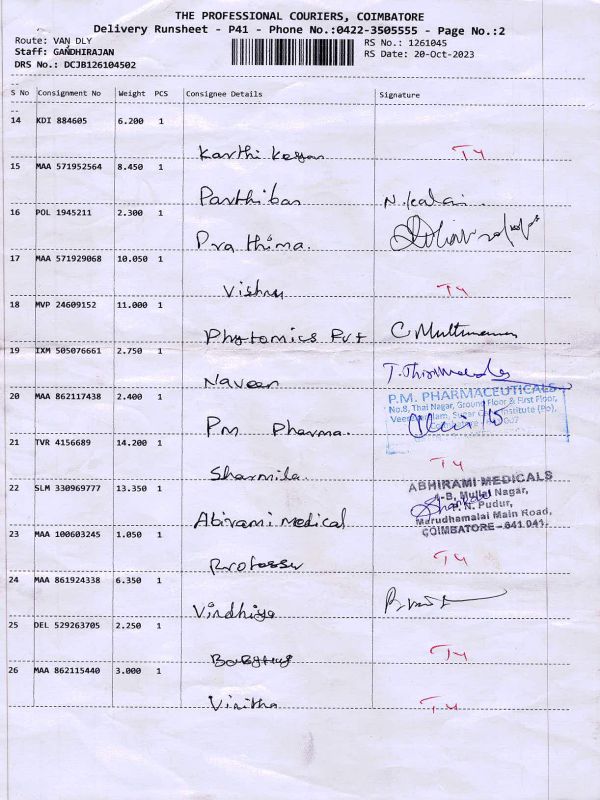 THE PROFESSIONAL COURIERS, COIMBATORE
Delivery Runsheet - P41 - Phone No.:0422-3505555 - Page No.:2
Route: VAN DLY
Staff: GANDHIRAJAN
DRS No.: DCJB126104502
RS No.: 1261045
RS Date: 20-Oct-2023
S No Consignment No Weight PCS Consignee Details Signature
14 KDI 884605 6.200 1
Karthi Keyan T4
15 MAA 571952564 8.450 1
Parthiban N. Kalai
16 POL 1945211 2.300 1
Prathima.
17 MAA 571929068 10.050 1
Vishnu T4
18 MVP 24609152 11.000 1
Phytomics Pvt
19 IXM 505076661 2.750 1
Naveen
20 MAA 862117438 2.400 1
P.m Pharma.
P.M. PHARMACEUTICALS
No.8, Thai Nagar, Ground Floor & First Floor,
21 TVR 4156689 14.200 1
Sharmila T4
22 SLM 330969777 13.350 1
Abirami medical
ABHIRAMI MEDICALS
4-B, Mullai Nagar,
P. N. Pudur,
Marudhamalai Main Road,
COIMBATORE - 641 041.
23 MAA 100603245 1.050 1
T4
24 MAA 861924338 6.350 1
Vindhiya
25 DEL 529263705 2.250 1
T4
26 MAA 862115440 3.000 1
Vinitha T4